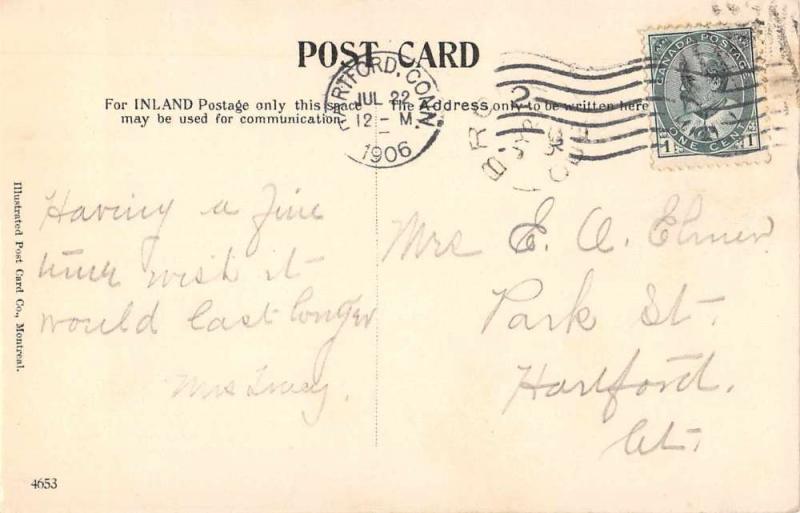 POST CARD
For INLAND Postage only this space
may be used for communication.
The Address only to be written here
HARTFORD, CONN.
JUL 22
12 - M
1906
CANADA POSTAGE
ONE CENT
1 1
Having a fine
time wish it
would last longer
Mrs Tracy.
Mrs E. A. Elmer
Park St.
Hartford.
Ct.
Illustrated Post Card Co., Montreal.
4653